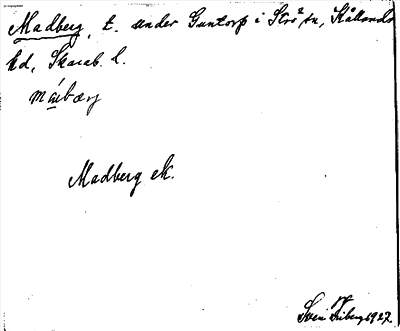 Madberg, t. under Guntorp i Strö sn, Kållands
hd, Skarab. l.
máᵢbærj
Madberg ek.
Sven Friberg 1927.